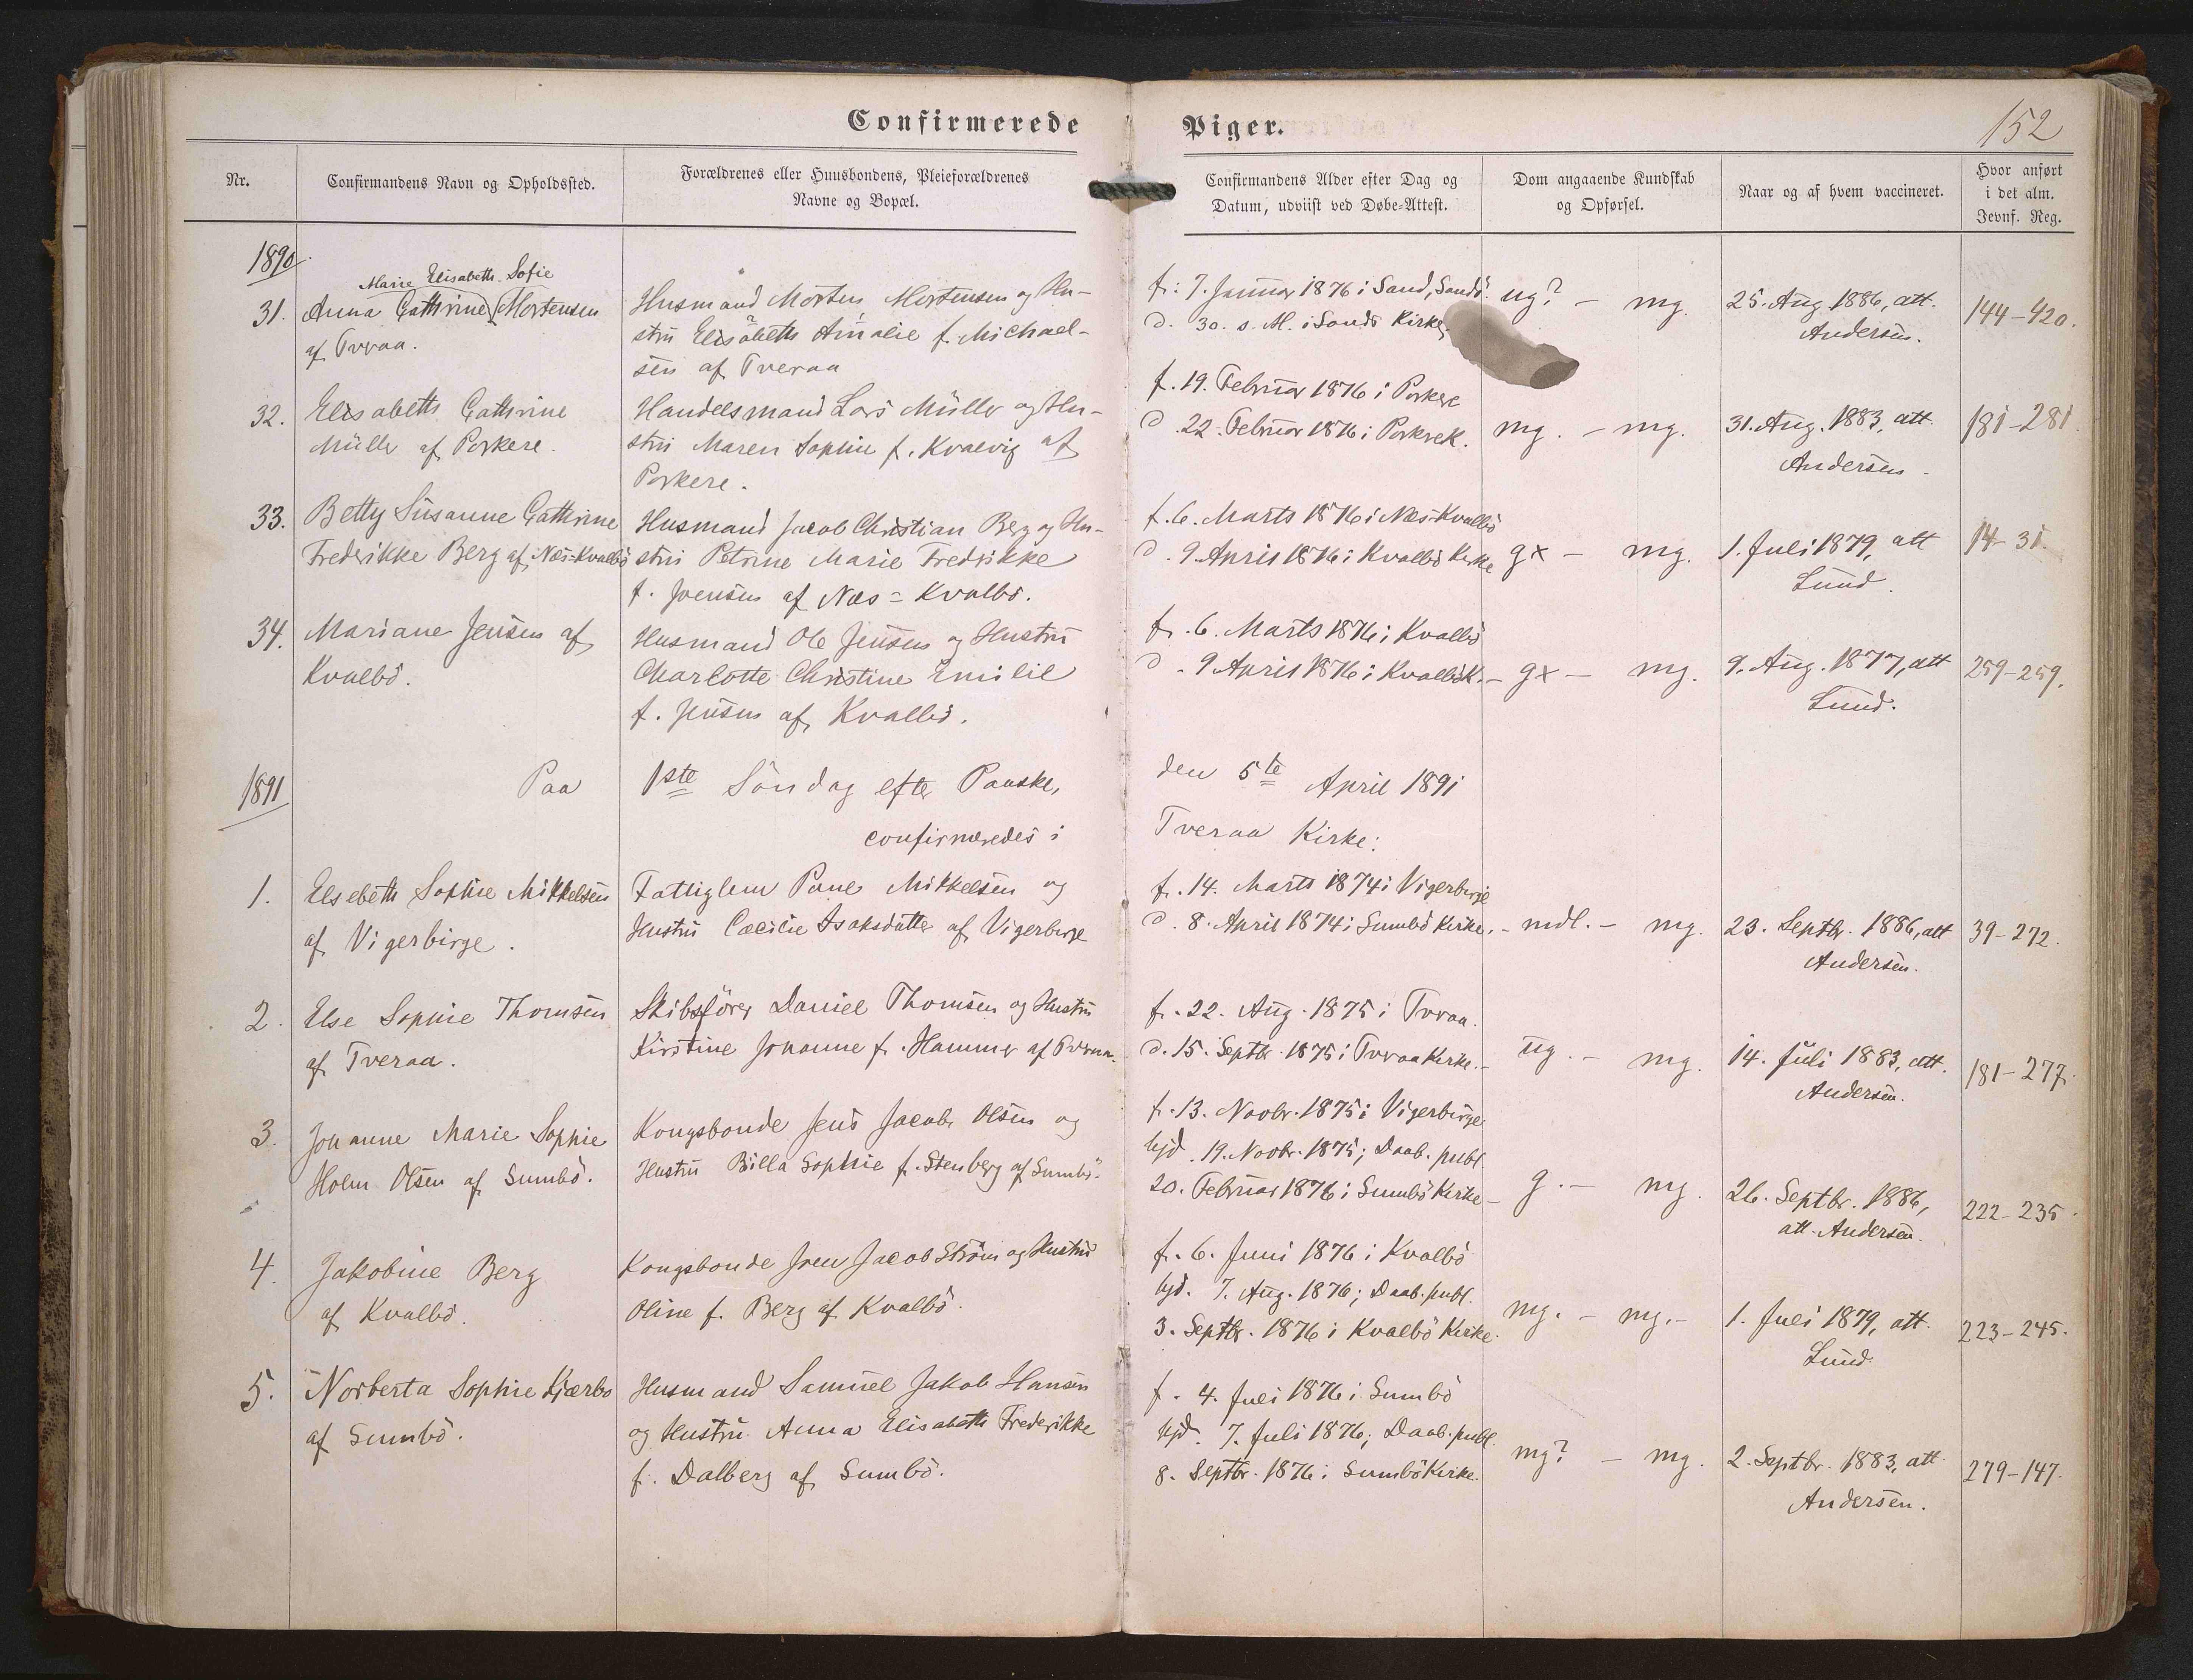 Confirmerede Piger.
152
Nr.
Confirmandens Navn og Opholdssted.
Forældrenes eller Huusbondens, Pleieforældrenes
Navne og Bopæl.
Confirmandens Alder efter Dag og
Datum, udviist ved Døbe-Attest.
Dom angaaende Kundskab
og Opførsel.
Naar og af hvem vaccineret.
Hvor anført
i det alm.
Jevnf. Reg.
1890
Marie Elisabeth Sofie
31. Anna Cathrine Mortensen
af Tvraa.
Husmand Morten Mortensen og Hu-
stru Elisabeth Amalie f. Michael-
sen af Tveraa
f. 7. Januar 1876 i Sand, Sandö
d. 30. s. M. i Sands Kirke
ug? - mg.
25. Aug. 1886, att.
Andersen.
144-420.
32. Elisabeth Cathrine
Müller af Porkere.
Handelsmand Lars Müller og Hu-
stru Maren Sophie f. Kvalvig af
Porkere.
f. 19. Februar 1876 i Porkere
d. 22. Februar 1876 i PorkreK.
mg. - mg.
31. Aug. 1883, att.
Andersen.
181-281.
33. Betty Susanne Cathrine
Frederikke Berg af Næs-Kvalbö
Husmand Jacob Christian Berg og Hu-
stru Petrine Marie Fredrikke
f. Joensen af Næs-Kvalbö.
f. 6. Marts 1876 i Næs-Kvalbö
d. 9. April 1876 i Kvalbö Kirke
gx - mg.
1. Juli 1879, att
Lund.
14-31.
34. Mariane Jensen af
Kvalbö.
Husmand Ole Jensen og Hustru
Charlotte Christine Emilie
f. Jensen af Kvalbö.
f. 6. Marts 1876 i Kvalbö
d. 9 April 1876 i KvalböK.
- gx - mg.
9. Aug. 1877, att
Lund.
259-259.
1891
Paa 1ste Söndag efter Paaske, den 5te April 1891
confirmeredes i Tveraa Kirke:
1. Elsebeth Sophie Mikkelsen
af Vigerbirge.
Fattiglem Poul Mikkelsen og
Hustru Cæcilie Isaksdatter af Vigerbirge
f. 14. Marts 1874 i Vigerbirge
d. 8. April 1874 i Sumbö Kirke.
- mdl. - mg.
23. Septbr. 1886, att
Andersen.
39-272.
2. Else Sophie Thomsen
af Tveraa.
Skibsförer Daniel Thomsen og Hustru
Kirstine Johanne f. Hammer af Tvraa.
f. 22. Aug. 1875 i Tvraa.
d. 15. Septbr. 1875 i Tvraa Kirke.
- ug. - mg.
14. Juli 1883, att.
Andersen.
181-277.
3. Johanne Marie Sophie
Holm Olsen af Sumbö.
Kongsbonde Jens Jacob Olsen og
Hustru Billa Sophie f. Stenberg af Sumbö.
f. 13. Novbr. 1875 i Vigerbirge
hjd. 19. Novbr. 1875; Daab. publ.
20. Februar 1876 i Sumbö Kirke
- g. - mg.
26. Septbr. 1886,
att. Andersen.
222-235.
4. Jakobine Berg
af Kvalbö.
Kongsbonde Joen Jacob Ström og Hustru
Oline f. Berg af Kvalbö.
f. 6. Juni 1876 i Kvalbö
hjd. 7. Aug. 1876; Daab. publ.
3. Septbr. 1876 i Kvalbö Kirke.
mg. - mg. -
1. Juli 1879, att.
Lund.
223-245.
5. Norberta Sophie Kjærbo
af Sumbö.
Husmand Samuel Jakob Hansen
og Hustru Anna Elisabeth Frederikke
f. Dalberg af Sumbö.
f. 4. Juli 1876 i Sumbö
hjd. 7. Juli 1876; Daab. publ.
8. Septbr. 1876 i Sumbö Kirke.
mg? - mg.
2. Septbr. 1883, att
Andersen.
279-147.